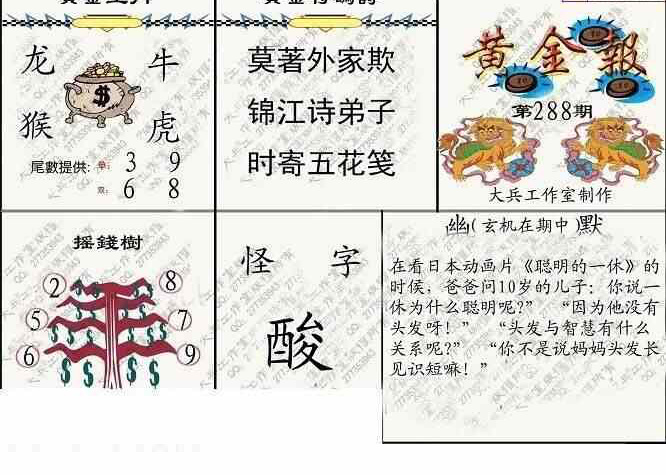 龙
牛
猴
虎
尾數提供:
單:
3 9
双:
6 8
莫著外家欺
锦江诗弟子
时寄五花笺
黄金報
第288期
大兵工作室制作
摇錢樹
2
8
5
7
6
9
怪字
酸
幽(玄机在期中)默
在看日本动画片《聪明的一休》的
时侯，爸爸问10岁的儿子：你说一
休为什么聪明呢?” “因为他没有
头发呀！” “头发与智慧有什么
关系呢?” “你不是说妈妈头发长
见识短嘛！”